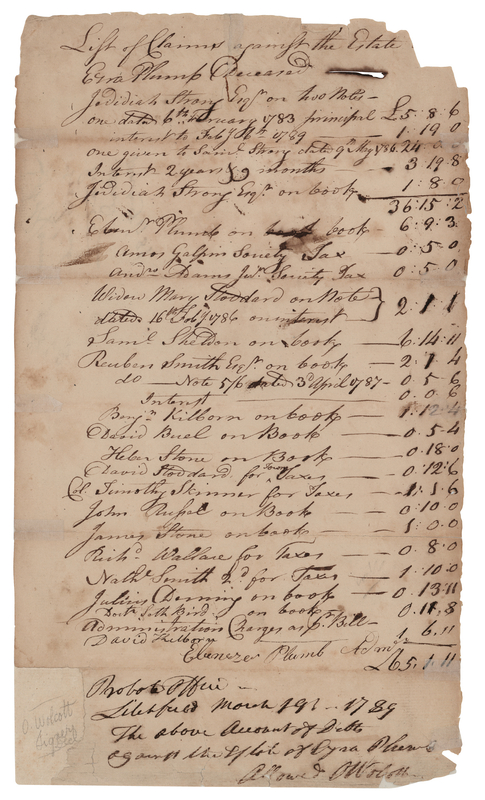 List of Claims against the Estate
Ezra Plump Deceased
Jedidiah Strong Esqr. on two Notes —
one dated 6th February 1783 principal £5:8:6
interest to Feby 1789 — 1:19:0
one given to Saml. Strong date 9th May 1786. 24
Interest 2 years & 9 months — 3 19 8
Jedidiah Strong Esqr. on book — 1:8:0
36:15:2
Ebenr. Plumb on book 6:9:3
Amos Galpin Society Tax — 0:5:0
Andrw Adams Society Tax 0:5:0
Widow Mary Stoddard on Note
dated 16th Feby 1786 on interest } 2:1:1
Saml. Sheldon on book — 6:14:11
Reuben Smith Esqr. on book — 2:1:4
do — Note 5/6 dated 3d April 1787 — 0:5:6
Interest 0:0:6
Benjn. Kilborn on book — 1:12:4
David Buel on Book — 0:5:4
Heber Stone on Book — 0:18:0
David Stoddard for Town Taxes — 0:12:6
Col. Timothy Skinner for Taxes — 1:1:6
John Russel on Book — 0:10:0
James Stone on book — 1:0:0
Richd. Wallace for Taxes — 0:8:0
Nathl. Smith 2d for Taxes — 1:10:0
Julius Deming on book — 0:13:11
Doctr. Seth Bird on book — 0:11,8
Administration Charges as pr. Bill —
David Kilborn 1, 6,11
Ebenezer Plumb Admr.
Probate Office —
Litchfield March 1789
The above Account of Debts
against the Estate of Ezra Plumb
Allowed O Wolcott
O. Wolcott
Signer